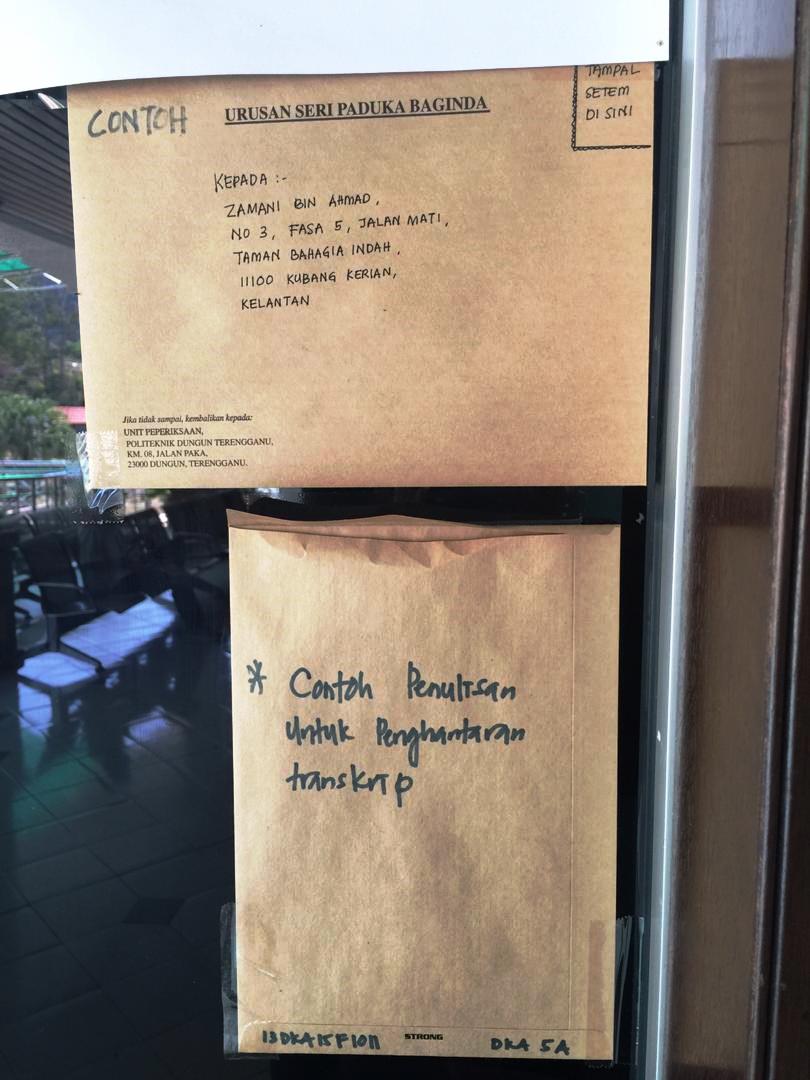 CONTOH
URUSAN SERI PADUKA BAGINDA
TAMPAL
SETEM
DI SINI
KEPADA :-
ZAMANI BIN AHMAD,
NO 3, FASA 5, JALAN MATI,
TAMAN BAHAGIA INDAH,
11100 KUBANG KERIAN,
KELANTAN
Jika tidak sampai, kembalikan kepada:
UNIT PEPERIKSAAN,
POLITEKNIK DUNGUN TERENGGANU,
KM. 08, JALAN PAKA,
23000 DUNGUN, TERENGGANU.
* Contoh Penulisan
untuk Penghantaran
transkrip
13DKA15F1011 STRONG DKA 5A